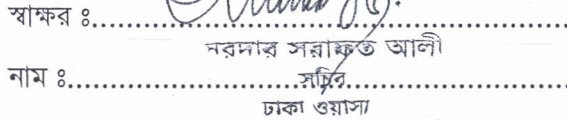 স্বাক্ষর ঃ..............................................................
সরদার সরাফত আলী
নাম ঃ..............সচিব..............................
ঢাকা ওয়াসা